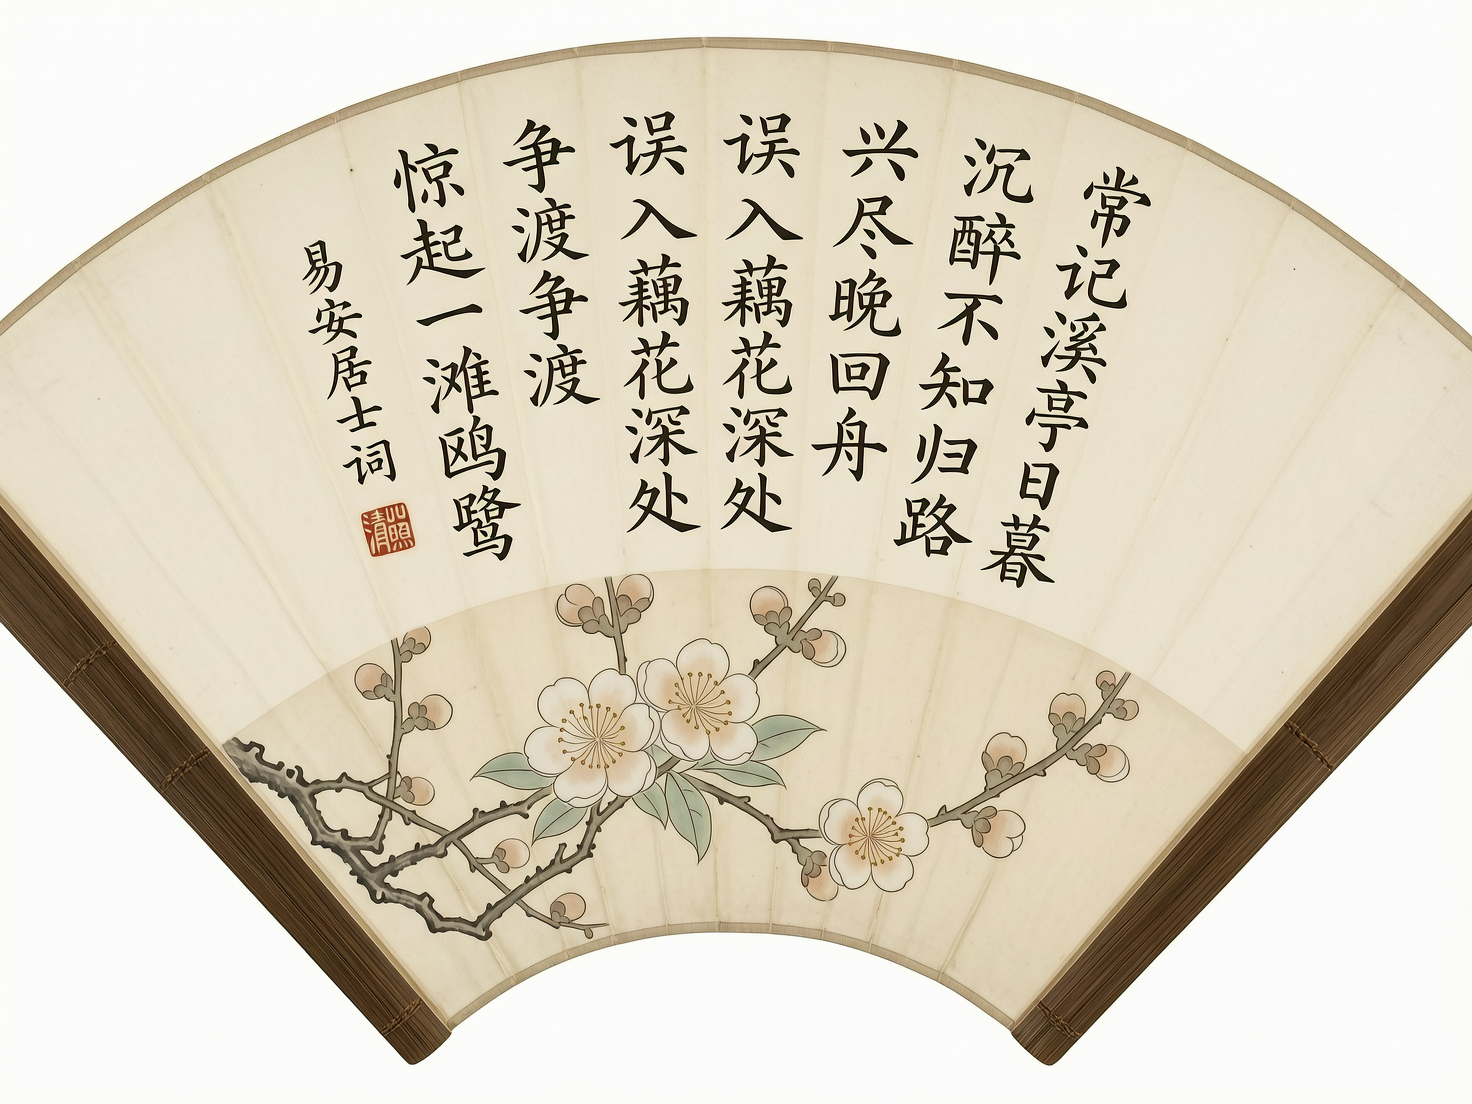 常记溪亭日暮
沉醉不知归路
兴尽晚回舟
误入藕花深处
误入藕花深处
争渡争渡
惊起一滩鸥鹭
易安居士词
照清